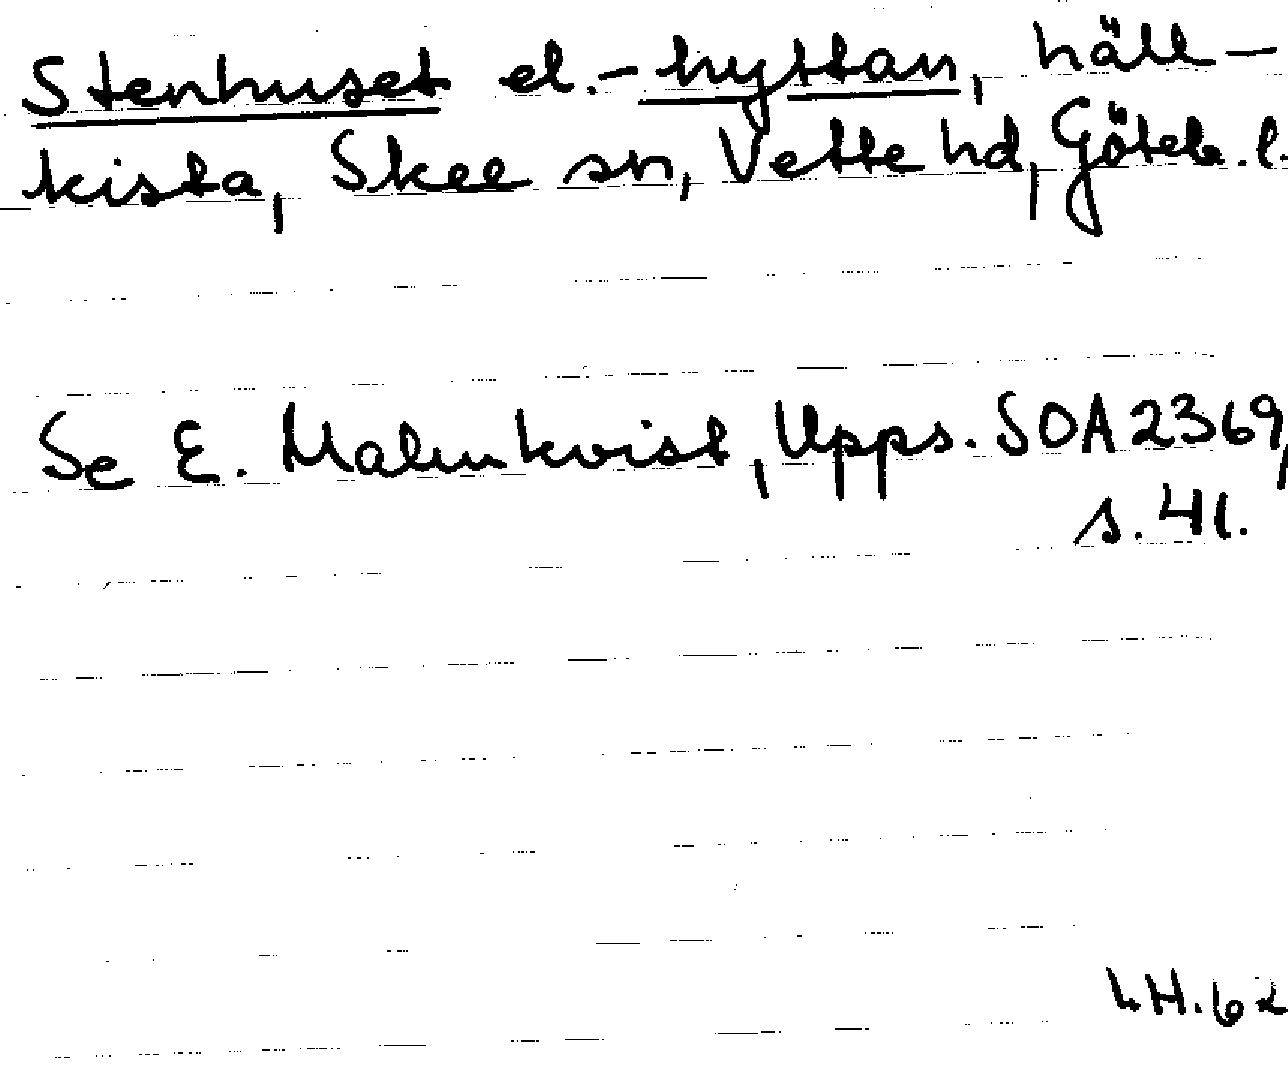 Stenhuset el. -hyttan, häll-
kista, Skee sn, Vette hd, Göteb. l.
Se E. Malmkvist, Upps. SOA 2369,
s. 41.
LH. 62